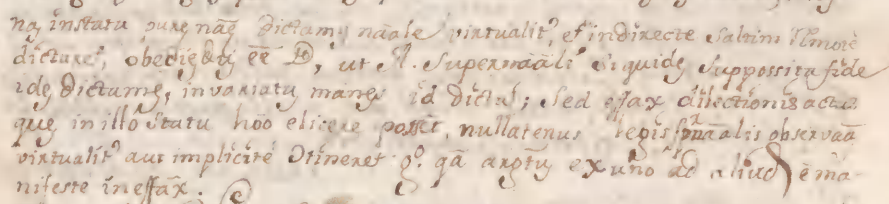 na, in statu pure nāe dictamꝭ nāale virtualitꝰ, et indirecte saltim
dictaret, obediēdū eē D, ut A. Supernāāli siquidē suppossita fide
idē dictamē, invariatū manēs id dictat; sed effax dilectionis actus
que in illo statu hōo elicere posset, nullatenus legis sprnāalis observaā
virtualitꝰ aut implicite Otineret gº. qā argtū ex uno ad aliud ē ma-
nifeste ineffax.